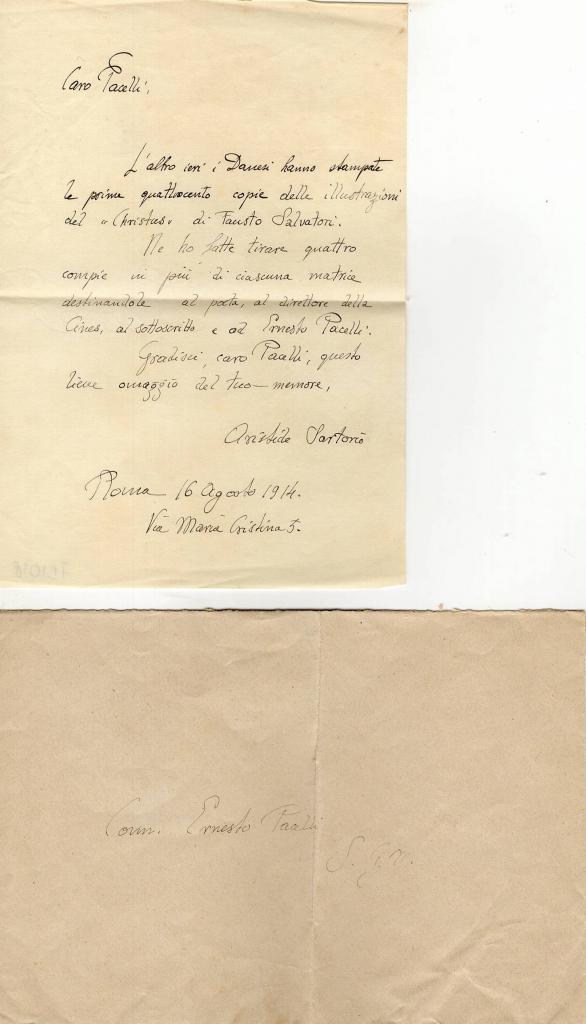 Caro Pacelli,
L'altro ieri i Danesi hanno stampate
le prime quattrocento copie delle illustrazioni
del "Christus" di Fausto Salvatori.
Ne ho fatte tirare quattro
compie in più di ciascuna matrice
destinandole al poeta, al direttore della
Cines, al sottoscritto e ad Ernesto Pacelli.
Gradisci, caro Pacelli, questo
lieve omaggio del tuo memore,
Aristide Sartorio
Roma 16 Agosto 1914.
Via Maria Cristina 5.
Comm. Ernesto Pacelli